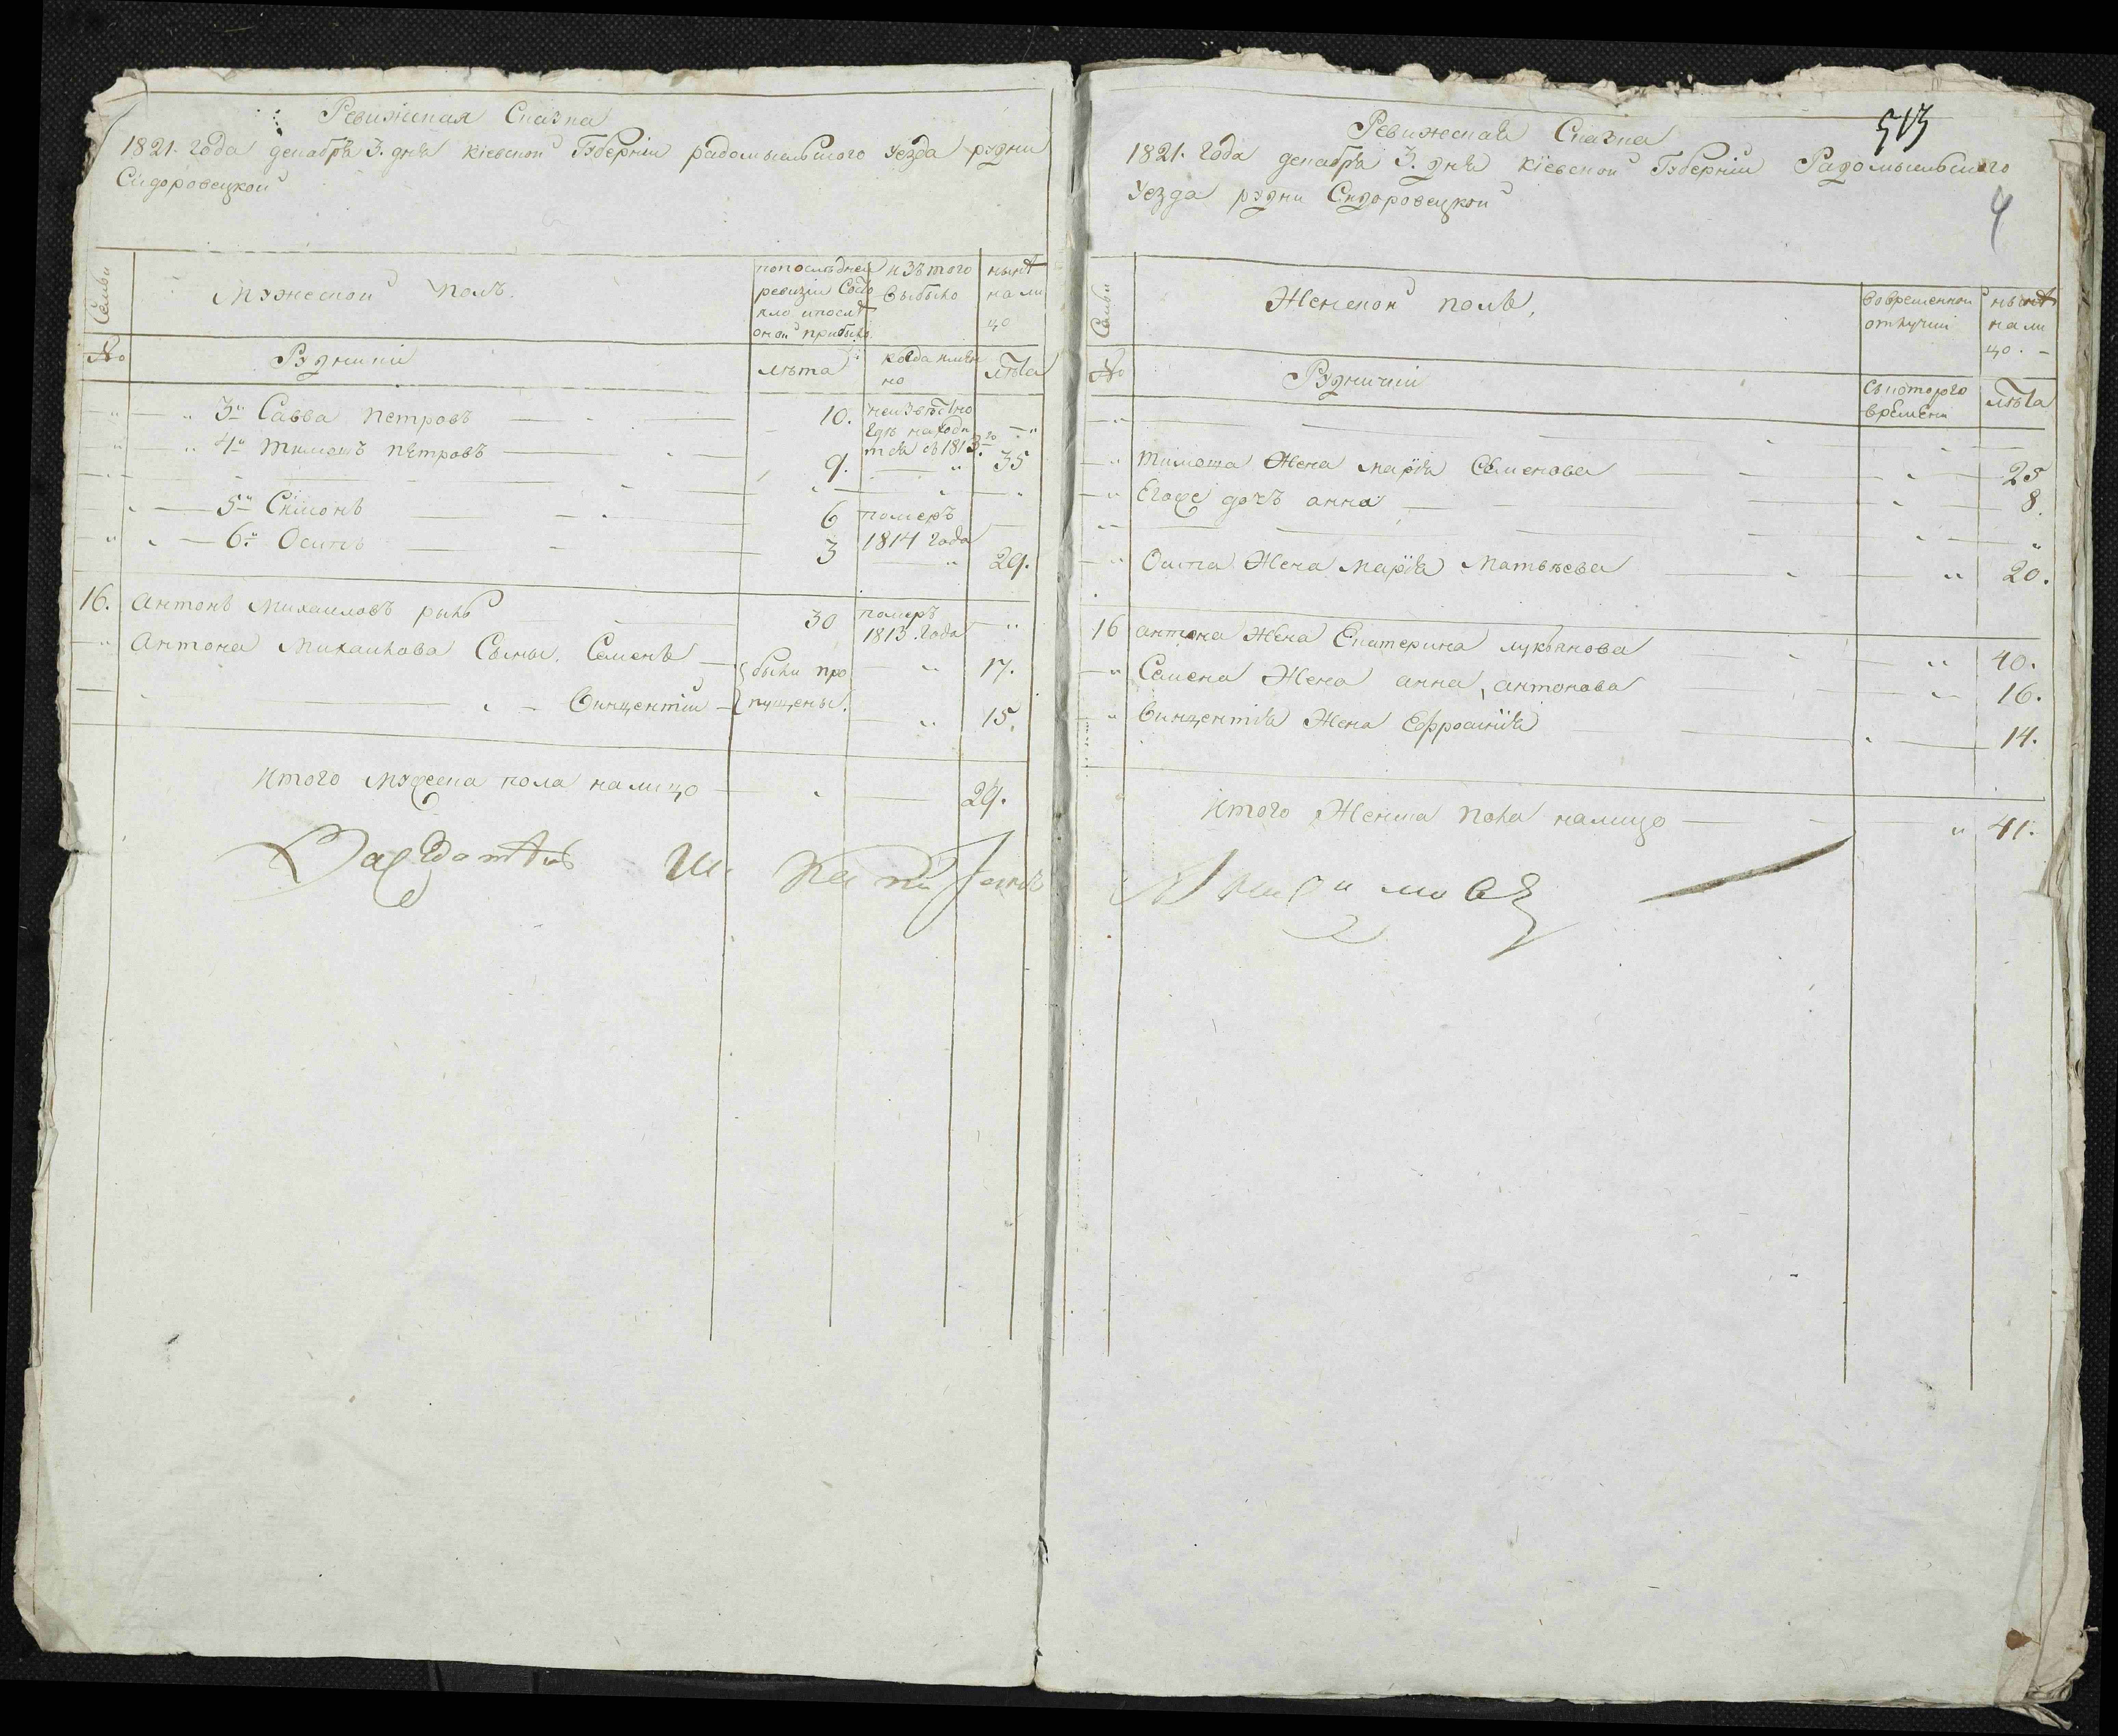 Ревижская Сказка
1821. года декабря 3. дня Кіевской Губерніи радомысльского уезда рудни
Сидоровецкой
Семьи
Мужеской полъ.
попоследней
ревизіи Состо
яло ипосле
оной прибыло
изътого
выбыло
нынѣ
нали
цо
№
Рудники
лѣта
когда имян
но
лѣта
" — " 3й Савва петровъ — 10. неизвѣстно
где находи
тся съ 1813го — "
" " 4й тимошъ петровъ — 9. — " 35
5й Симонъ — 6 померъ
1814 года —
" 6й Осипъ — 3 — " 29.
16. Антонъ Михаиловъ рыхъ — 30 померъ
1813. года — "
" Антона Михаилова Сыны. Семенъ — были про " 17.
— Винцентій — пущены. — " 15.
итого мужеска пола налицо — 29.
Ревижская Сказка
513
1821. года декабря 3. дня Кіевской Губерніи Радомысльского
4
Уезда рудни Сидоровецкой
Семьи
Женской полъ,
вовременной
отлучки
нынѣ
нали
цо. —
№
Рудничіи
Съкоторого
времени
лѣта
" тимоша Жена марія Семенова — 25
" Егоже дочь анна — 8.
" Осипа Жена Марія Матвѣева — " 20.
16 антона Жена Екатерина лукьянова — " 40.
" Семена Жена анна, антонова — " 16.
" Винцентія Жена Ефросинія — 14.
итого Женска пола налицо — " 41.